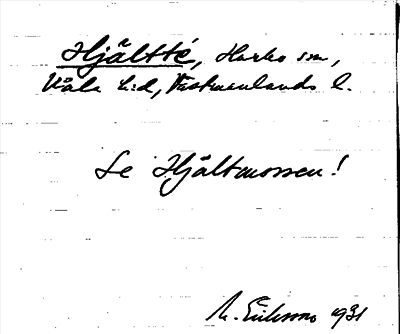 Hjältté, Harbo sn,
Våla h:d, Västmanlands l.
Se Hjältmossen!
M. Eriksson 1931